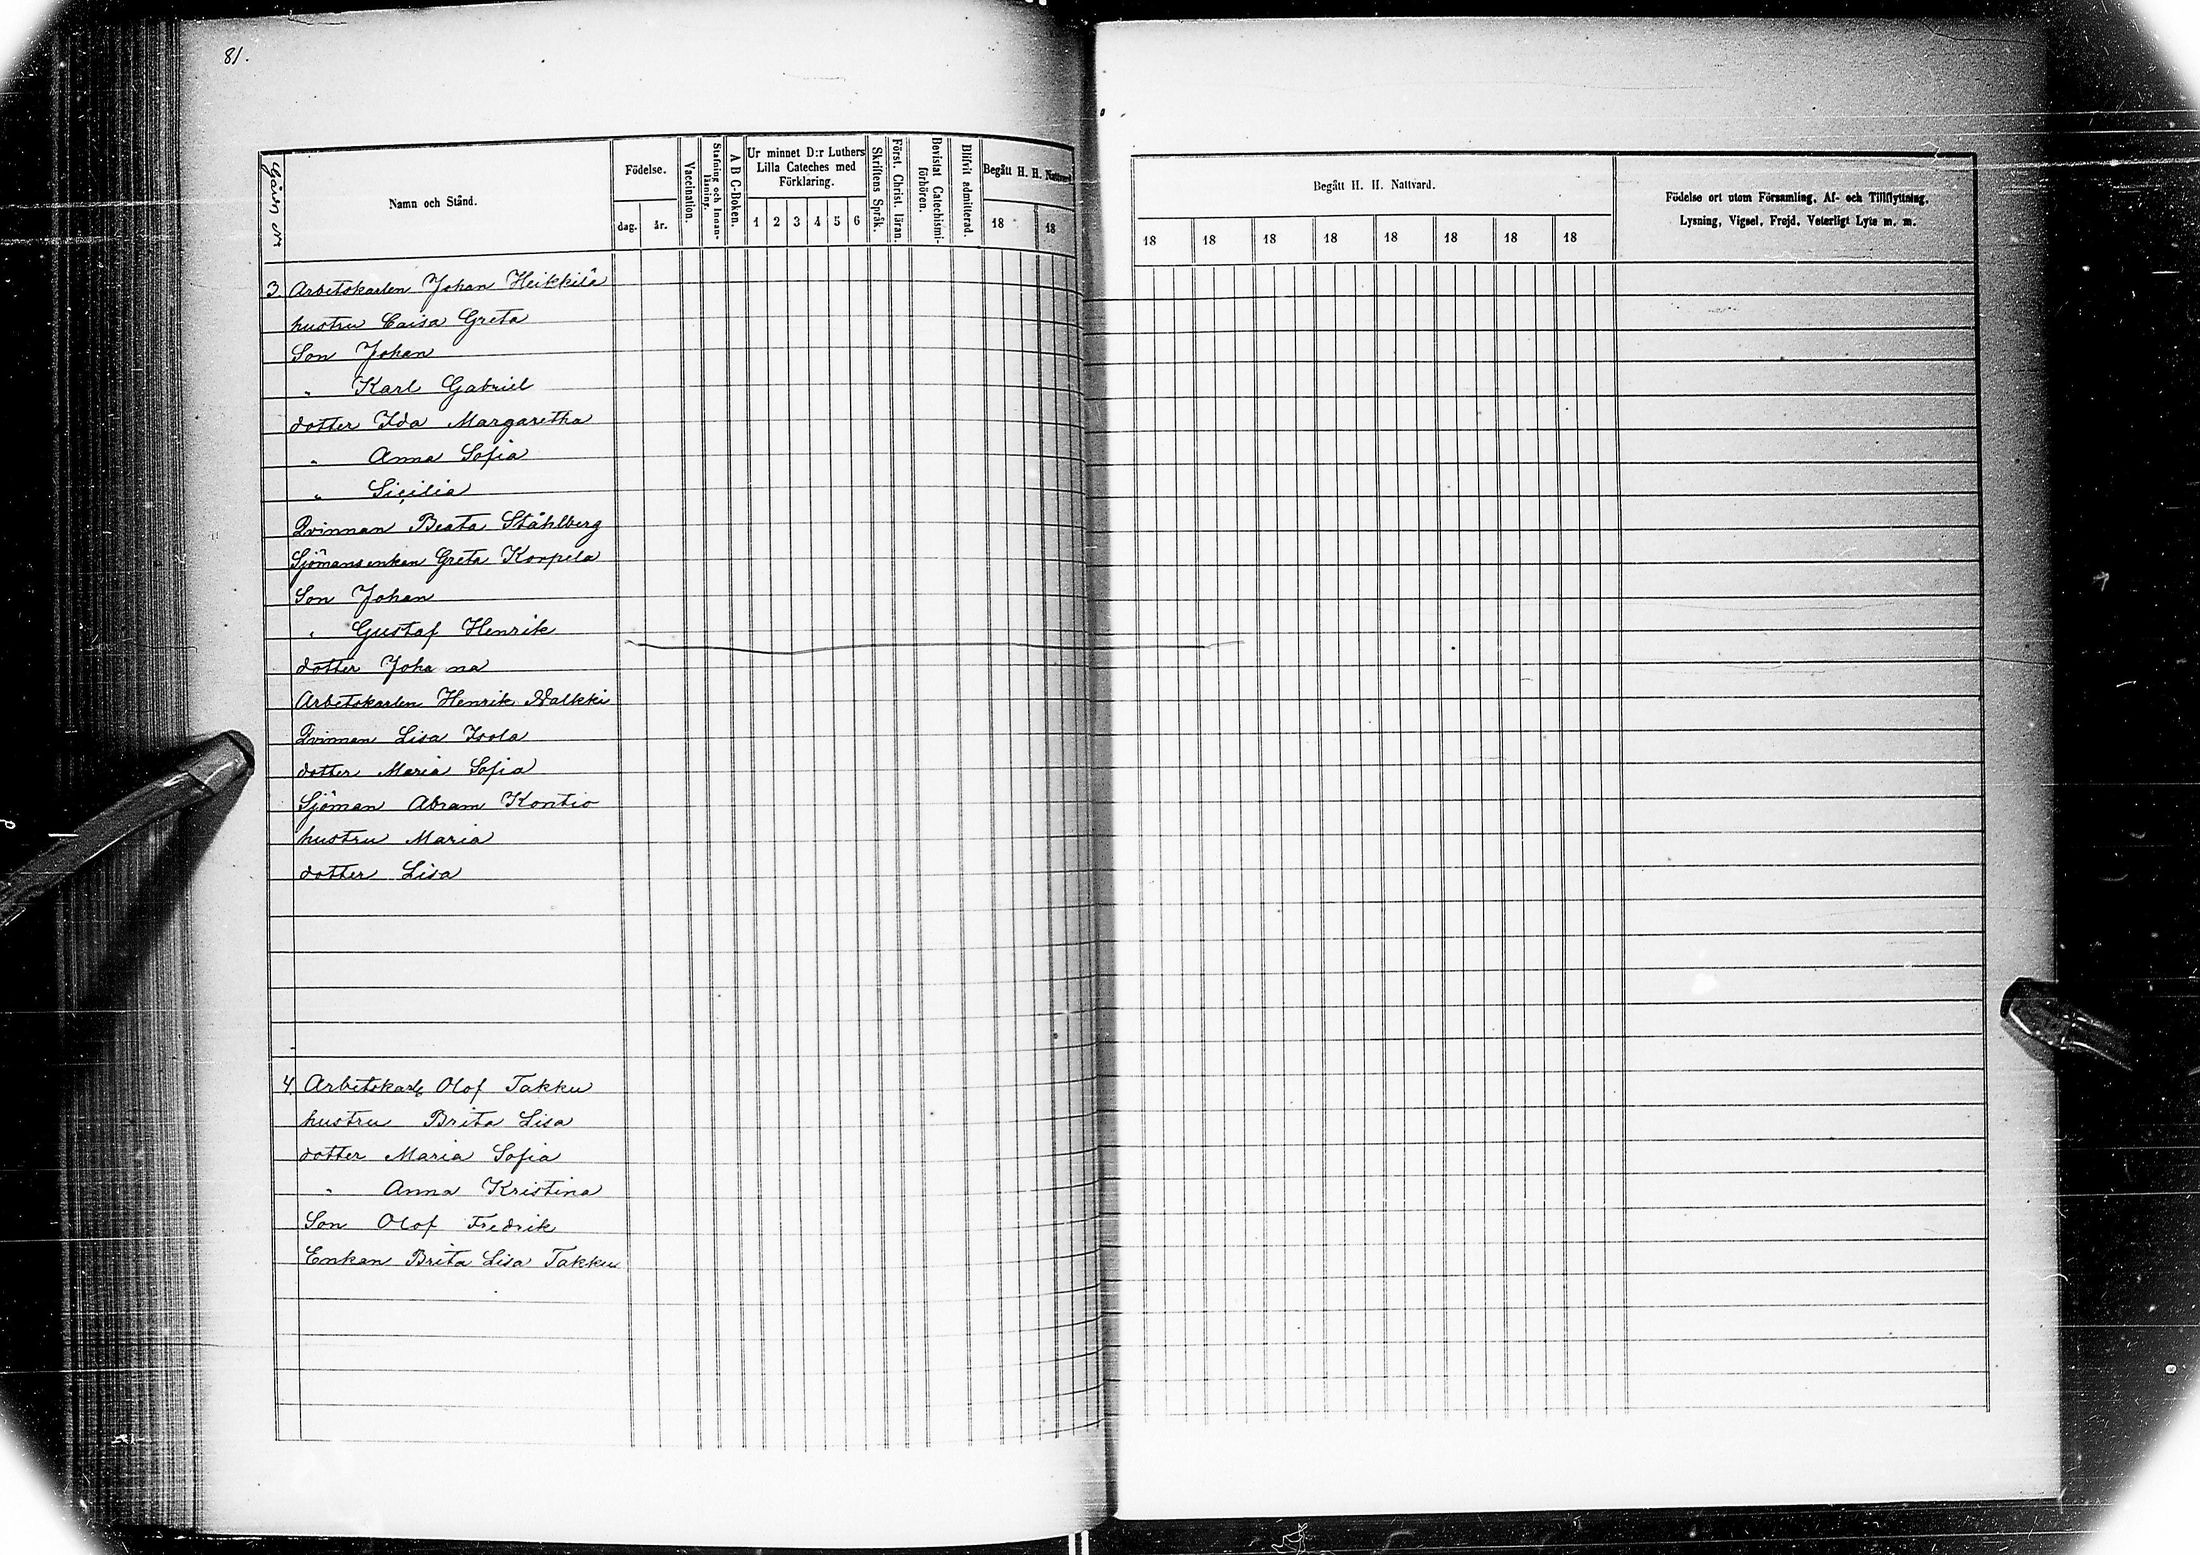 81.
Gård n:r
Namn och Stånd.
Födelse.
dag.
år.
Vaccination.
Stafning och Innanläsning.
A B C-Boken.
Ur minnet D:r Luthers
Lilla Cateches med
Förklaring.
1 2 3 4 5 6
Skriftens Språk.
Först. Christ. läran.
Bevistat Catechismi-förhören.
Blifvit admitterad.
Begått H. H. Nattvard.
18 18
Begått H. H. Nattvard.
18 18 18 18 18 18 18 18
Födelse ort utom Församling, Af- och Tillflyttning,
Lysning, Vigsel, Frejd, Veterligt Lyte m. m.
3 Arbetskarlen Johan Heikkilä
hustru Caisa Greta
Son Johan
" Karl Gabriel
dotter Ida Margaretha
" Anna Sofia
" Sicilia
Qvinnan Beata Ståhlberg
Sjömansenkan Greta Korpela
Son Johan
" Gustaf Henrik
dotter Joha na
Arbetskarlen Henrik Walkki
Qvinnan Lisa Isola
dotter Maria Sofia
Sjöman Abram Kontio
hustru Maria
dotter Lisa
4 Arbetskarlen Olof Takku
hustru Brita Lisa
dotter Maria Sofia
" Anna Kristina
Son Olof Fredrik
Enkan Brita Lisa Takku